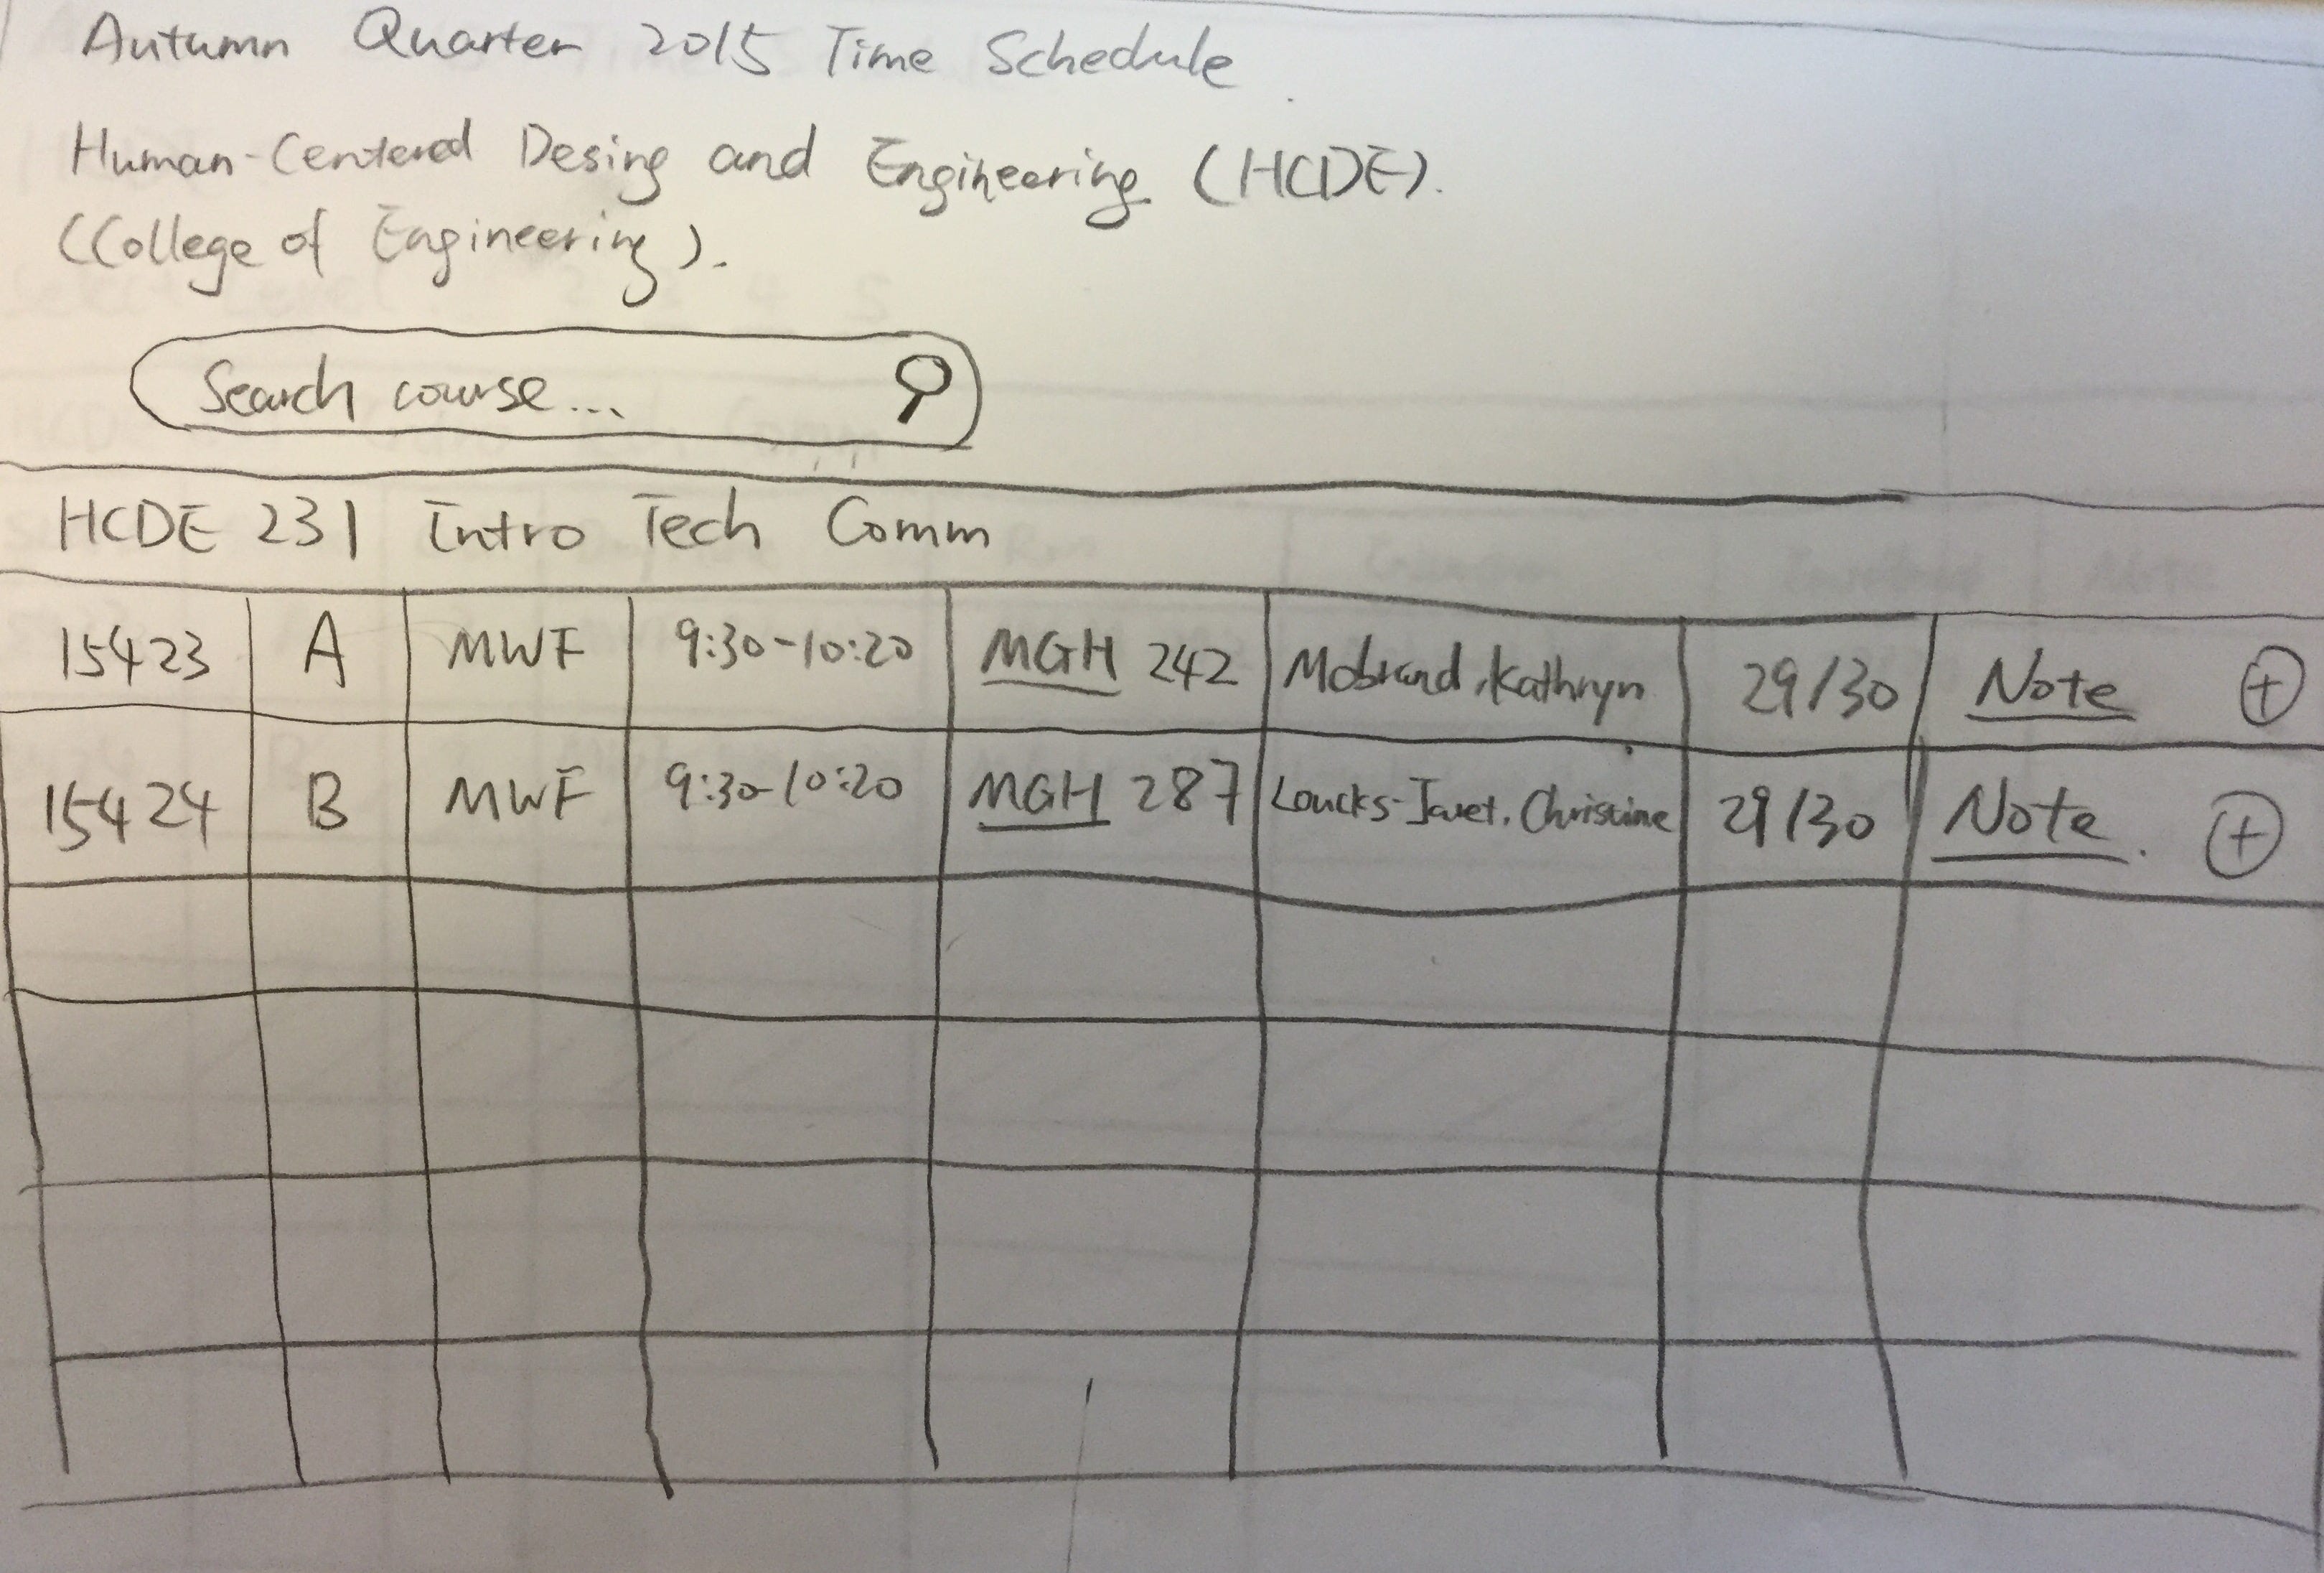 Autumn Quarter 2015 Time Schedule
Human-Centered Desing and Engineering (HCDE).
(College of Engineering).
Search course...
HCDE 231 Intro Tech Comm
15423 A MWF 9:30-10:20 MGH 242 Mobrand, Kathryn 29/30 Note +
15424 B MWF 9:30-10:20 MGH 287 Loucks-Javet, Christine 29/30 Note. +